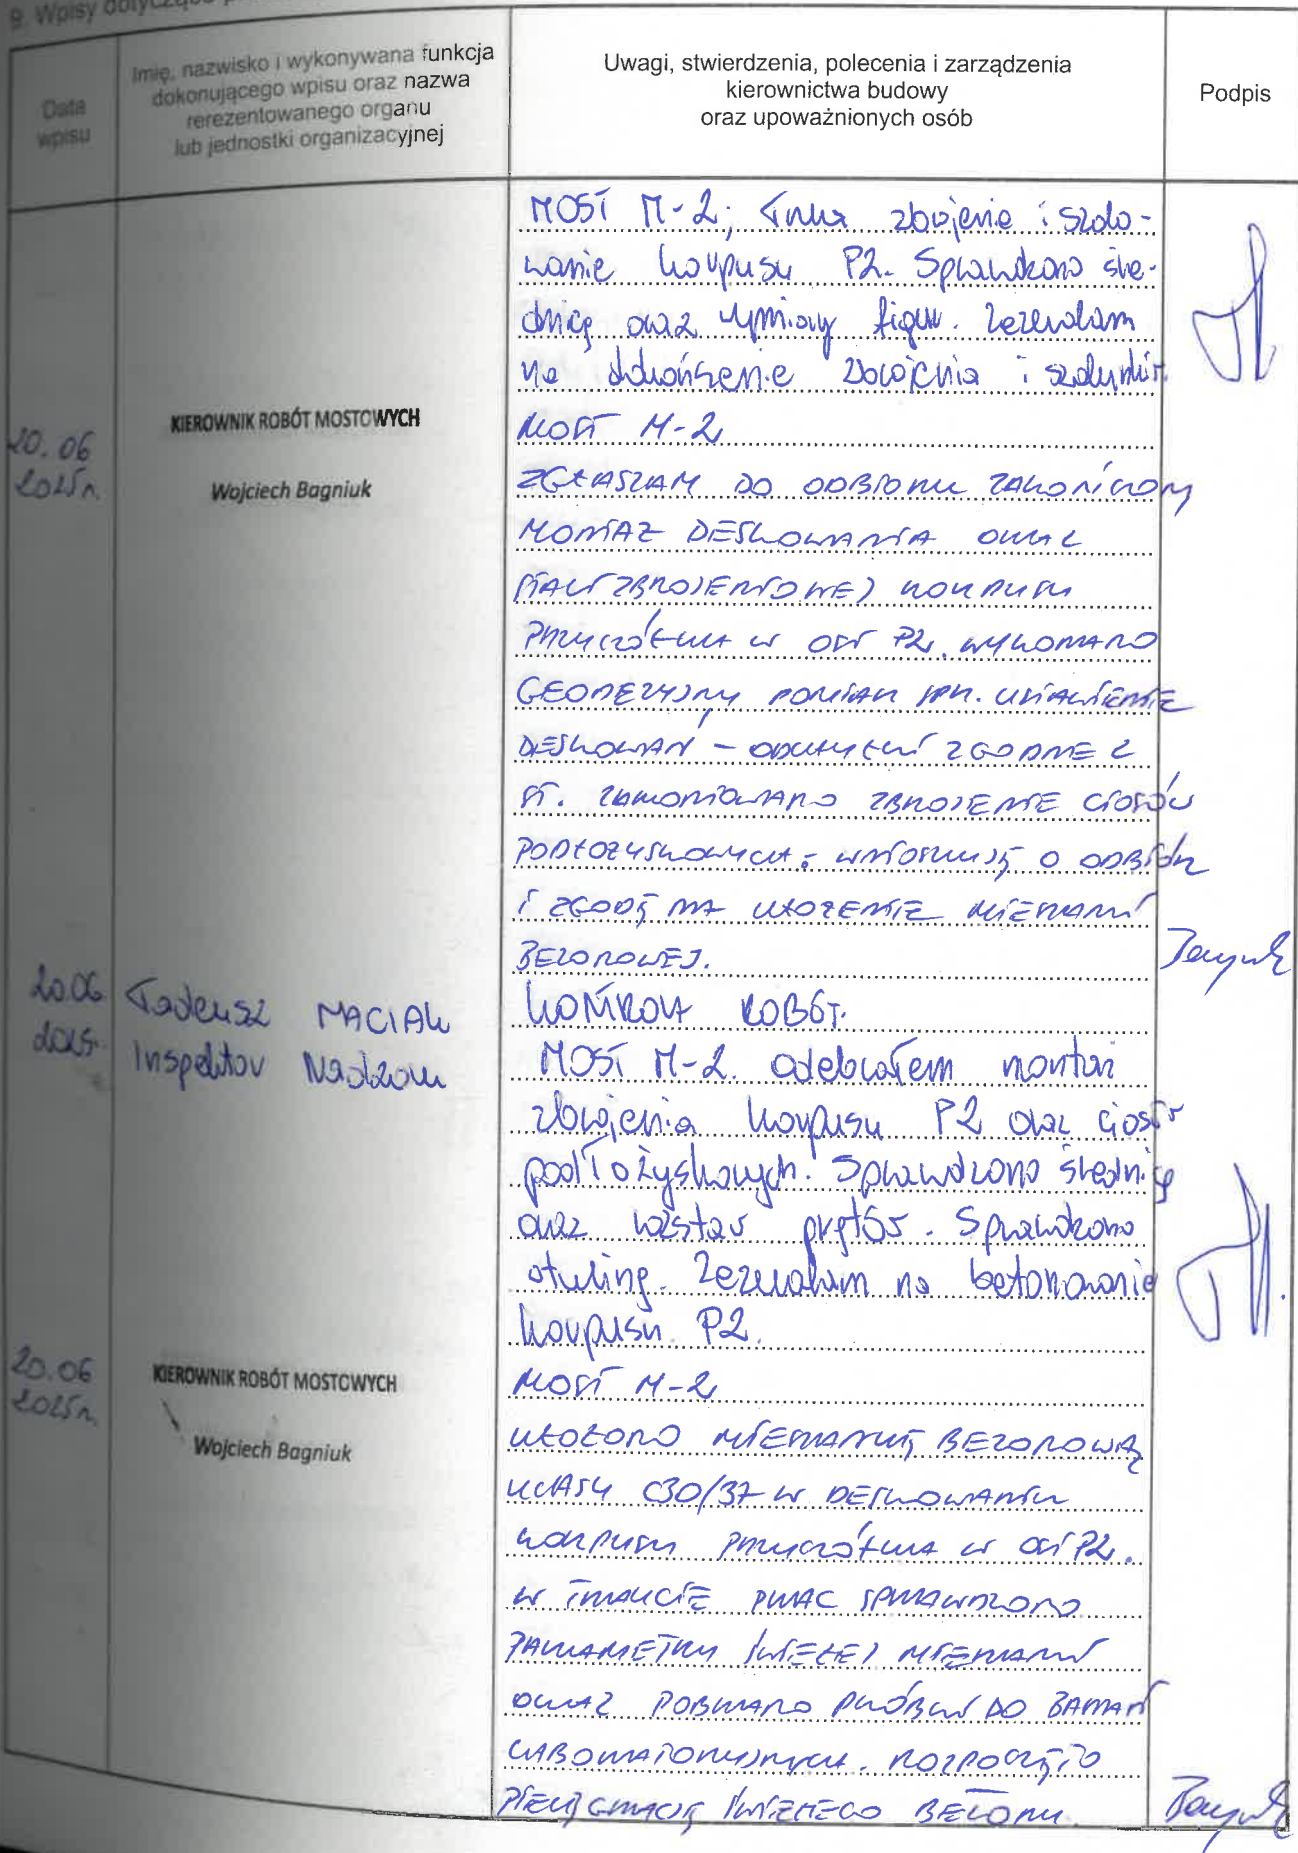 9. Wpisy dotyczące
Data
wpisu
Imię, nazwisko i wykonywana funkcja
dokonującego wpisu oraz nazwa
rerezentowanego organu
lub jednostki organizacyjnej
Uwagi, stwierdzenia, polecenia i zarządzenia
kierownictwa budowy
oraz upoważnionych osób
Podpis
MOST M-2; trwa zbrojenie i szalo-
wanie korpusu P2. Sprawdzono śre-
dnicę oraz wymiary figur. Zezwalam
na dokończenie zbrojenia i szalunków.
20.06
2025r.
KIEROWNIK ROBÓT MOSTOWYCH
Wojciech Bagniuk
MOST M-2
ZGŁASZAM DO ODBIORU ZAKOŃCZONY
MONTAŻ DESKOWANIA ORAZ
STALI ZBROJENIOWEJ KORPUSU
PRZYCZÓŁKA W OSI P2. WYKONANO
GEODEZYJNY POMIAR SPR. USTAWIENIE
DESKOWAŃ – ODCHYŁKI ZGODNE Z
ST. ZAMONTOWANO ZBROJENIE CIOSÓW
PODŁOŻYSKOWYCH. WNIOSKUJĘ O ODBIÓR
I ZGODĘ NA UŁOŻENIE MIESZANKI
BETONOWEJ.
20.06
2025.
Tadeusz MACIAK
Inspektor Nadzoru
KONTROLA ROBÓT.
MOST M-2. Odebrałem montaż
zbrojenia korpusu P2 oraz ciosów
podłożyskowych. Sprawdzono średnicę
oraz rozstaw prętów. Sprawdzono
otulinę. Zezwalam na betonowanie
korpusu P2.
20.06
2025r.
KIEROWNIK ROBÓT MOSTOWYCH
Wojciech Bagniuk
MOST M-2
UŁOŻONO MIESZANKĘ BETONOWĄ
KLASY C30/37 W DESKOWANIU
KORPUSU PRZYCZÓŁKA W OSI P2.
W TRAKCIE PRAC SPRAWDZONO
PARAMETRY ŚWIEŻEJ MIESZANKI
ORAZ POBRANO PRÓBKI DO BADAŃ
LABORATORYJNYCH. ROZPOCZĘTO
PIELĘGNACJĘ ŚWIEŻEGO BETONU.